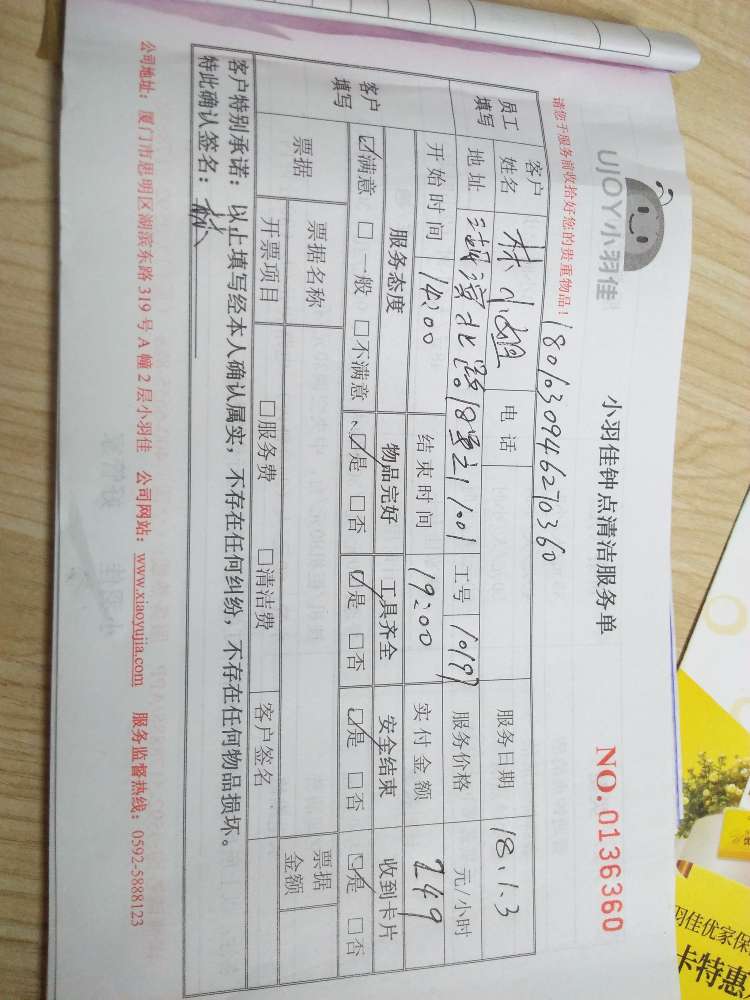 UJOY小羽佳
小羽佳钟点清洁服务单
NO. 0136360
请您于服务前收拾好您的贵重物品！
180103094620360
员工填写
客户姓名 林小姐 电话 服务日期 18.1.3
地址 湖滨北路18号之1 1001 工号 1019 服务价格 元/小时
开始时间 14:00 结束时间 19:00 实付金额 249
客户填写
服务态度 物品完好 工具齐全 安全结束 收到卡片
☑满意 □一般 □不满意 ☑是 □否 ☑是 □否 ☑是 □否 ☑是 □否
票据
票据名称 票据金额
开票项目 □服务费 □清洁费 客户签名
客户特别承诺：以上填写经本人确认属实，不存在任何纠纷，不存在任何物品损坏。
特此确认签名：林
公司地址：厦门市思明区湖滨东路 319 号 A 幢 2 层小羽佳 公司网站：www.xiaoyujia.com 服务监督热线：0592-5888123
羽佳优家保
卡特惠